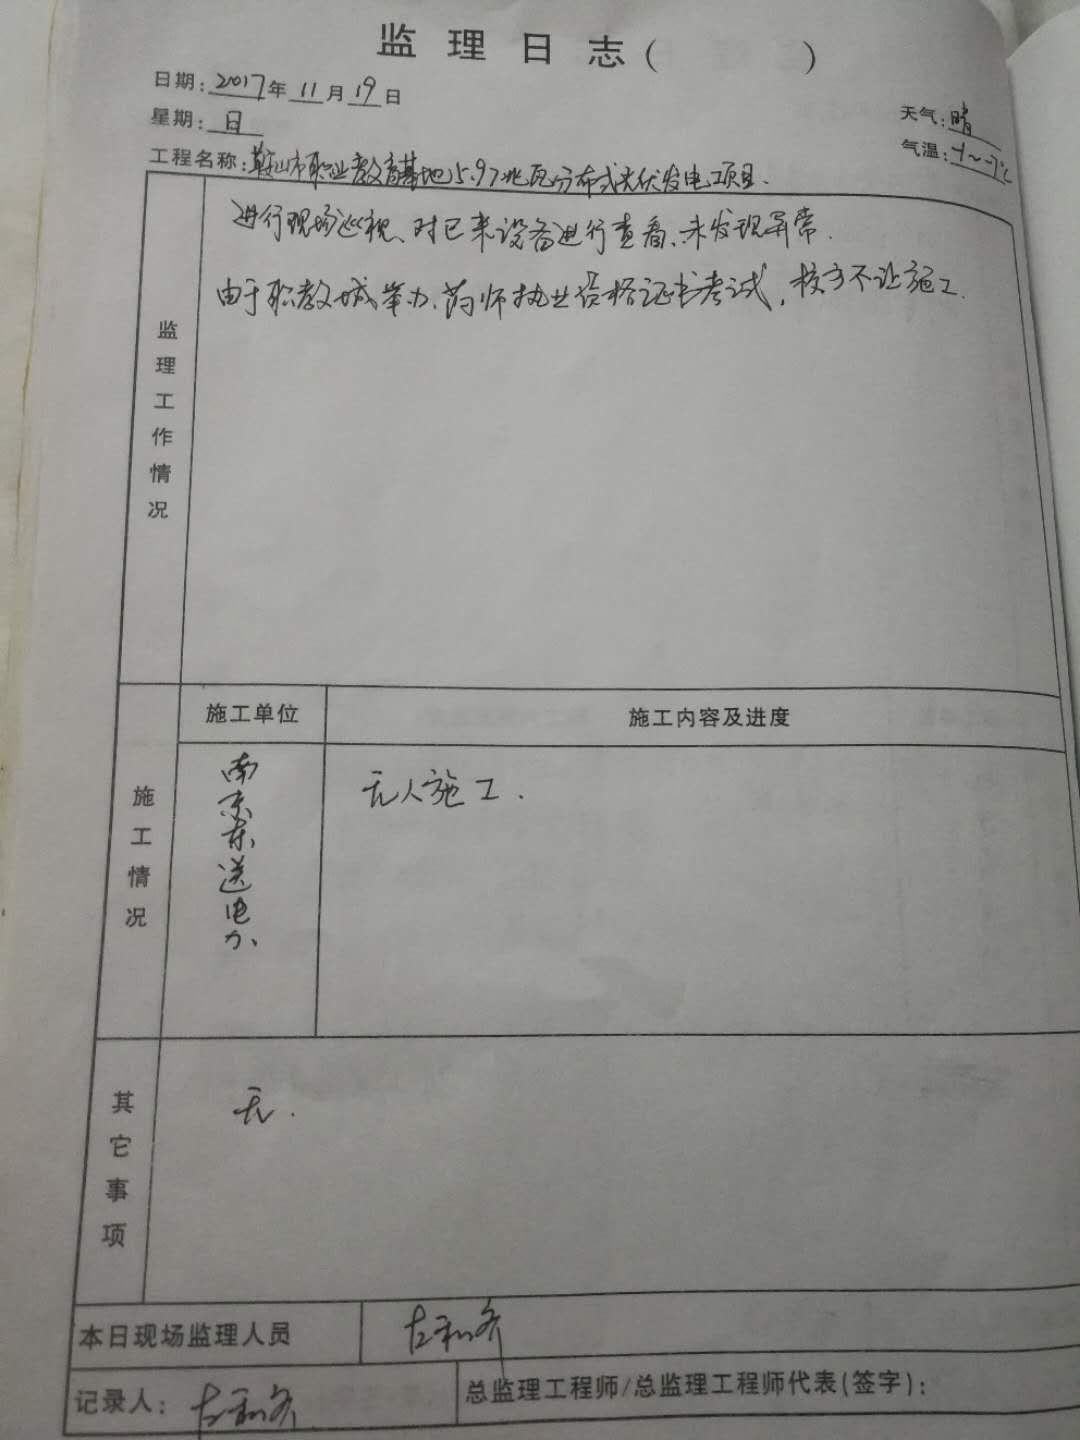 监理日志(    )
日期:2017年11月19日
星期:日
天气:晴
气温:
工程名称:鞍山市职业教育基地15.97兆瓦分布式光伏发电项目.
监理工作情况
进行现场巡视、对已来设备进行查看、未发现异常.
由于职教城举办、药师执业资格证书考试,校方不让施工.
施工情况
施工单位
施工内容及进度
南京东送电力
无人施工.
其它事项
无.
本日现场监理人员
记录人:
总监理工程师/总监理工程师代表(签字):